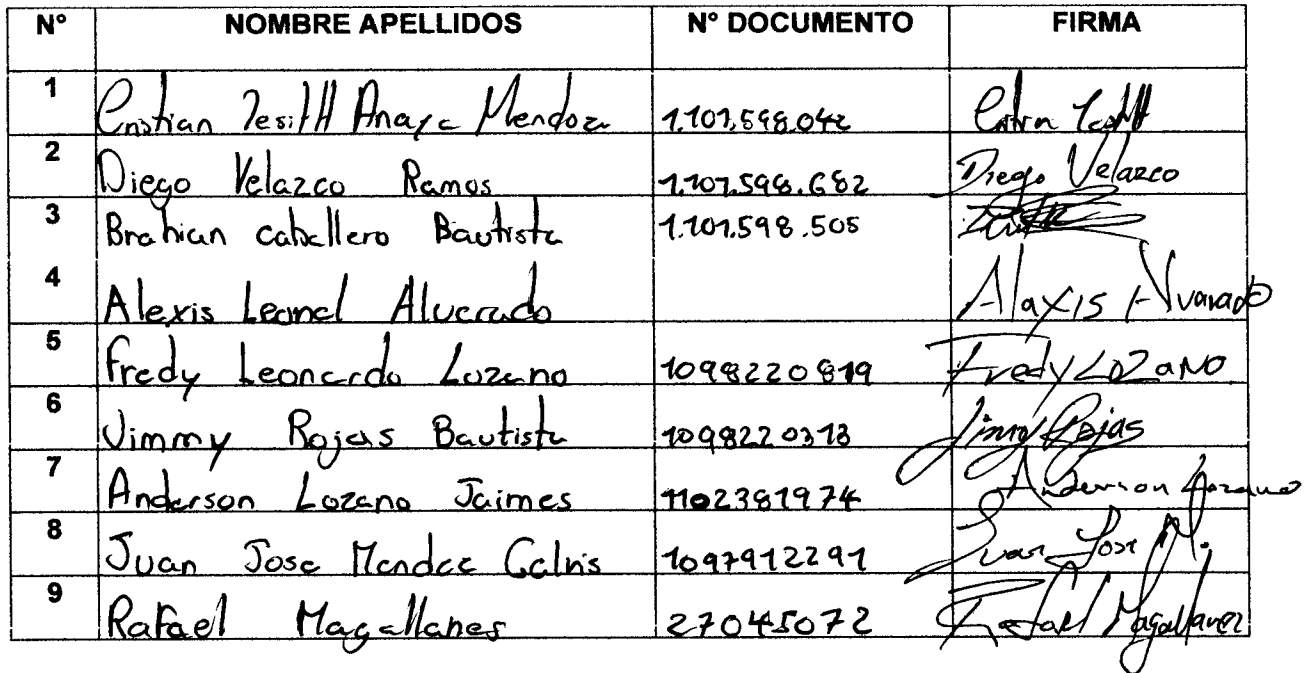 N° NOMBRE APELLIDOS N° DOCUMENTO FIRMA
1 Cristian Yesitt Anaya Mendoza 1.101.598.042
2 Diego Velazco Ramos 1.101.598.682 Diego Velazco
3 Brahian caballero Bautista 1.101.598.505
4 Alexis Leonel Alvarado Alaxis Alvarado
5 Fredy Leonardo Lozano 1098220819 Fredy LoZaNO
6 Jimmy Rojas Bautista 1098220313 Jimmy Rojas
7 Anderson Lozano Jaimes 1102381974 Anderson Lozano
8 Juan Jose Mendez Galvis 1097912291 Juan Jose M.
9 Rafael Magallanes 27045072 Rafael Magallanes